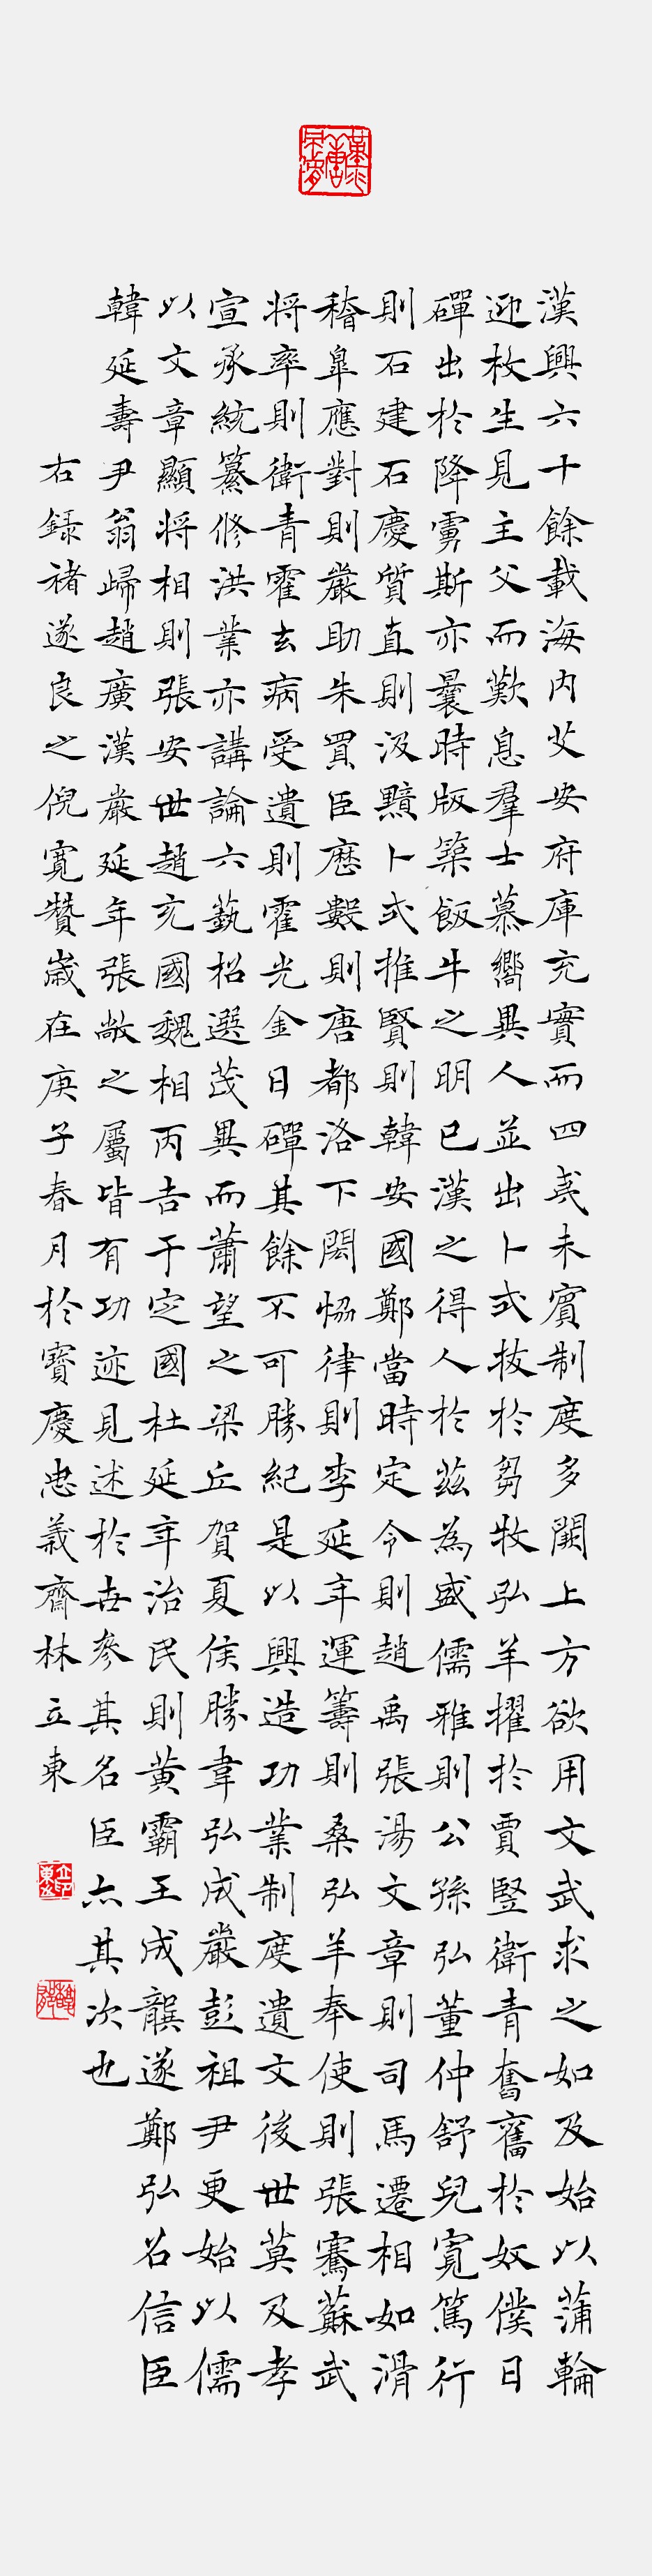 漢興六十餘載海内艾安府庫充實而四夷未賓制度多闕上方欲用文武求之如及始以蒲輪
迎枚生見主父而歎息羣士慕嚮異人並出卜式拔於芻牧弘羊擢於賈豎衛青奮舊於奴僕日
磾出於降虜斯亦曩時版築飯牛之明已漢之得人於茲為盛儒雅則公孫弘董仲舒兒寬篤行
則石建石慶質直則汲黯卜式推賢則韓安國鄭當時定令則趙禹張湯文章則司馬遷相如滑
稽皐應對則嚴助朱買臣歷數則唐都洛下閎恊律則李延年運籌則桑弘羊奉使則張騫蘇武
将率則衛青霍去病受遺則霍光金日磾其餘不可勝紀是以興造功業制度遺文後世莫及孝
宣承統纂修洪業亦講論六藝招選茂異而蕭望之梁丘賀夏侯勝韋弘成嚴彭祖尹更始以儒
以文章顯将相則張安世趙充國魏相丙吉于定國杜延年治民則黄霸王成龔遂鄭弘召信臣
韓延壽尹翁歸趙廣漢嚴延年張敞之屬皆有功迹見述於世參其名臣亦其次也
右錄褚遂良之倪寬贊歲在庚子春月於寶慶忠義齋林立東